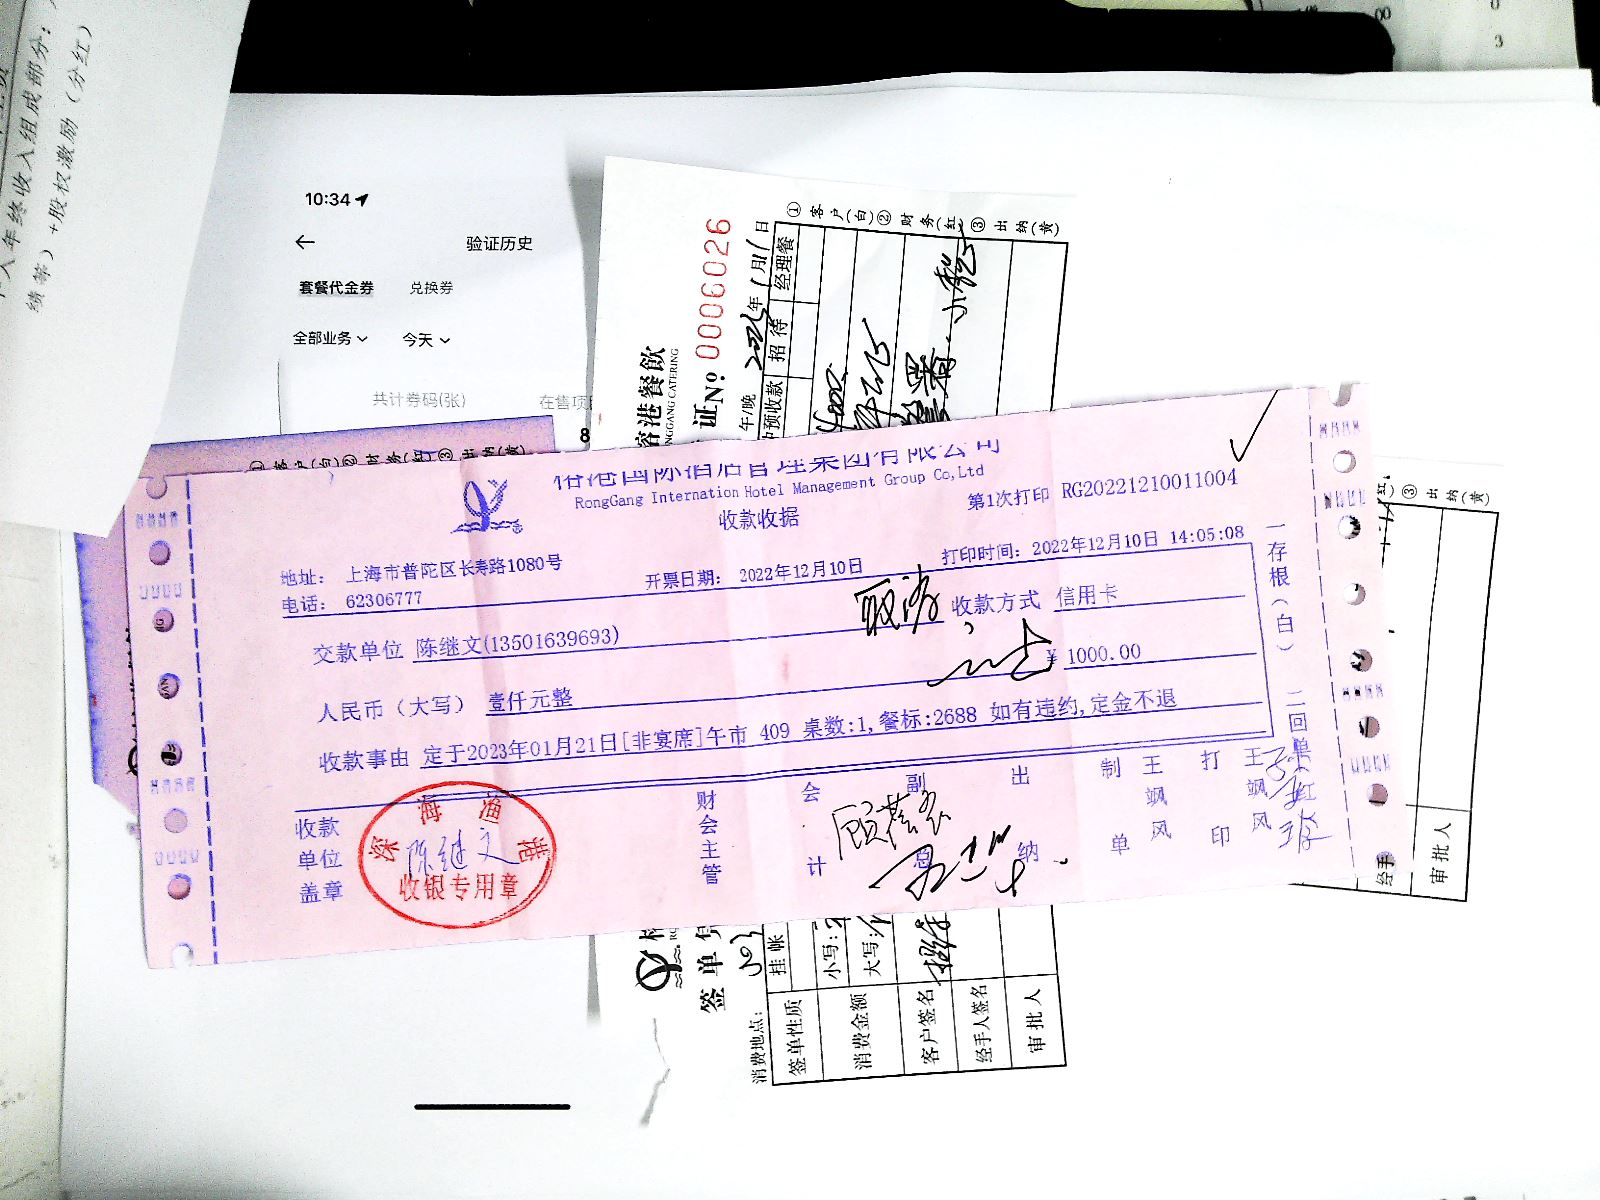 个人年终收入组成部分：
绩等）+股权激励（分红）
10:34
验证历史
套餐代金券 兑换券
全部业务 今天
共计券码(张) 在售项
8
容港餐飲
NGGANG CATERING
证No. 0006026
年 1月1日
午/晚
预收款 招待 经理餐
①客户(白)②财务(红)③出纳(黄)
①客户(白)②财务(红)③出纳(黄)
容港国际酒店管理集团有限公司
RongGang Internation Hotel Management Group Co,Ltd
收款收据
第1次打印 RG20221210011004
地址： 上海市普陀区长寿路1080号
电话： 62306777
开票日期： 2022年12月10日
打印时间： 2022年12月10日 14:05:08
交款单位 陈继文(13501639693)
取消
收款方式 信用卡
人民币（大写） 壹仟元整
¥ 1000.00
收款事由 定于2023年01月21日[非宴席]午市 409 桌数:1,餐标:2688 如有违约,定金不退
一存根(白) 二回单(红)
收款单位盖章
深海渔港
收银专用章
陈继文
财会主管
会计
副总
出纳
制单
王飒风
打印
王飒风
签单凭
消费地点：
签单性质 挂帐
消费金额 小写： 大写：
客户签名
经手人签名
审批人
③出纳(黄)
经手
审批人